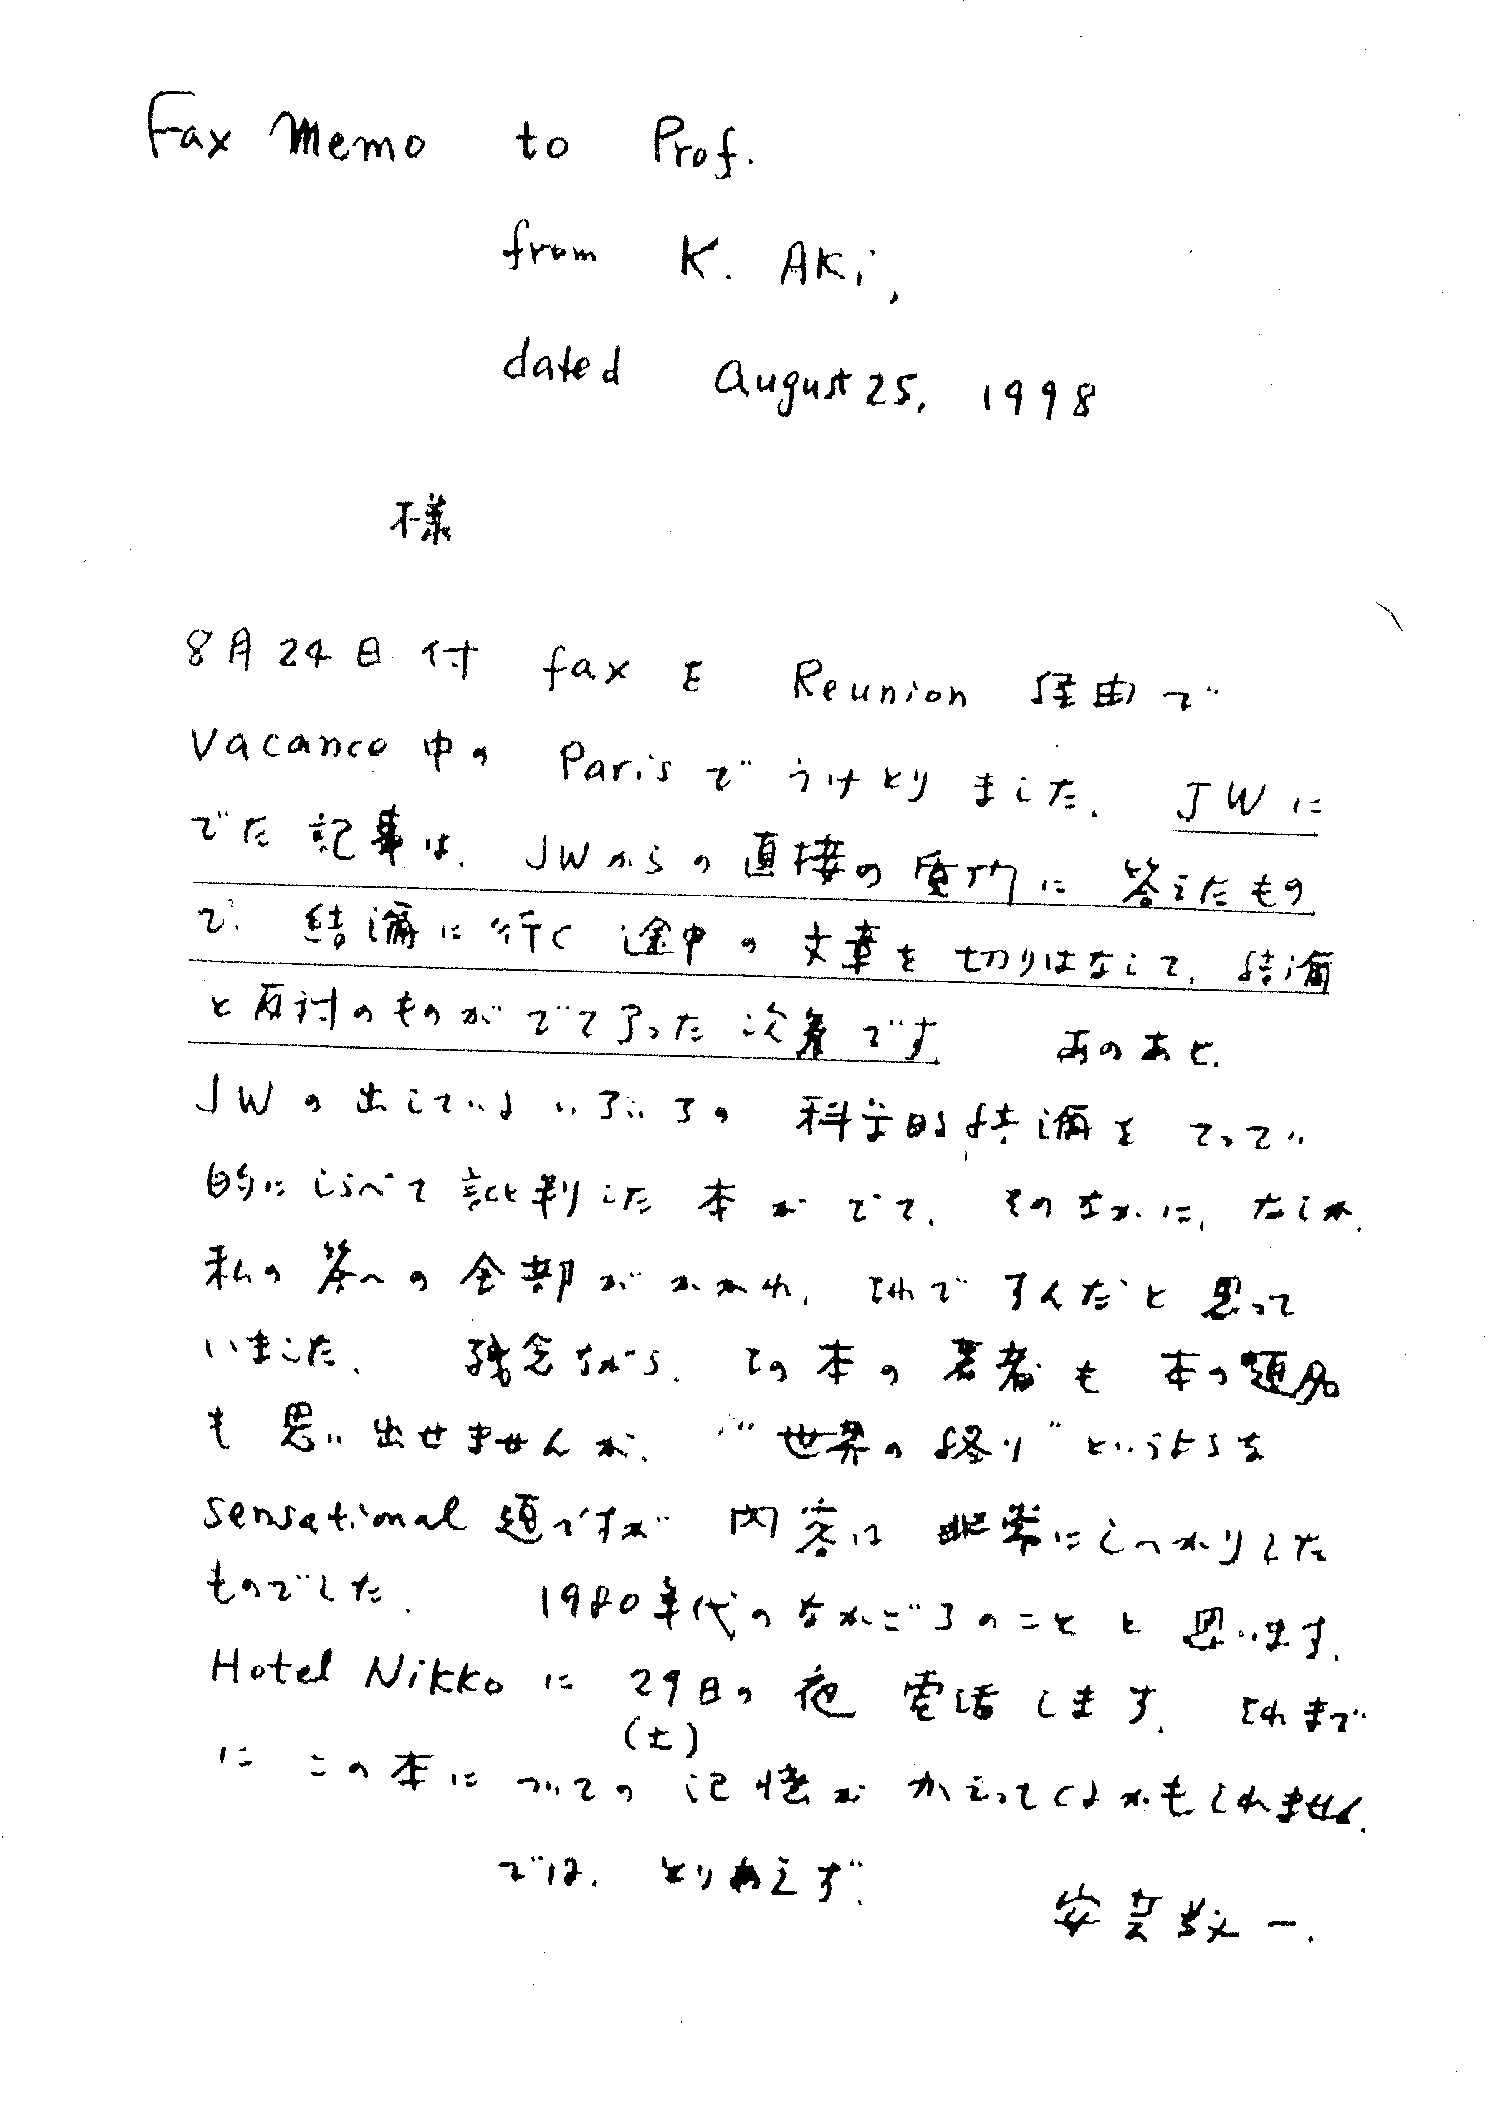 Fax Memo to Prof.
from K. Aki,
dated August 25, 1998
様
8月24日付 fax を Reunion 経由で
Vacance 中の Paris でうけとりました. JWに
でた記事は、JWからの直接の質問に答えたもの
で、結論に行く途中の文章を切りはなして、結論
と反対のものがでて了った次第です あのあと、
JWの出している いろいろの 科学的結論を てってい
的にしらべて批判した本がでて、そのなかに、たしか、
私の答への全部がかかれ、それですんだと思って
いました. 残念ながら、その本の著者も本の題名
も思い出せませんが、"世界の終り"というような
sensational 題ですが 内容は非常にしっかりした
ものでした. 1980年代のなかごろのことと思います.
Hotel Nikko に 29日の夜 電話します. それまで
(土)
に この本についての記憶が かえってくるかもしれません.
では、とりあえず.
安芸敬一.